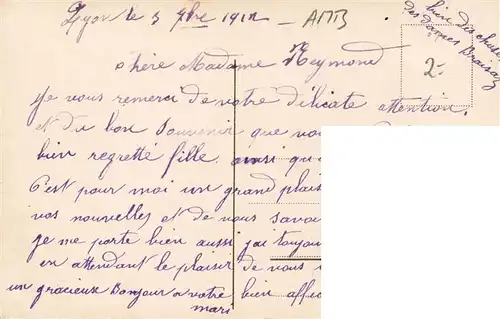 Lyon le 3 7bre 1912 - AMB
bien des choses
des dames
2-
chère Madame Reymond
Je vous remerci de votre délicate attention.
et du bon souvenir que vou
bien regretté fille. ainsi qu
C'est pour moi un grand plais
vos nouvelles et de vous savo
je me porte bien aussi j'ai toujou
en attendant le plaisir de vous
un gracieux Bonjour a votre bien affec
mari